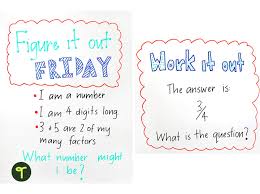 Figure it out
FRIDAY
• I am a number
• I am 4 digits long.
• 3 & 5 are 2 of my
many factors
What number might
I be?
Work it out
The answer is
3/4
What is the question?